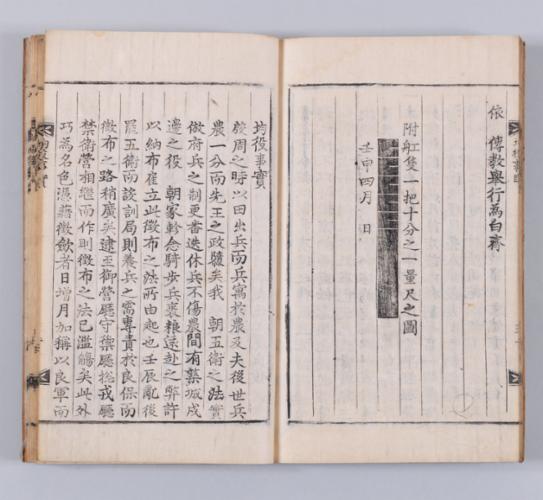 依 傳敎擧行爲白齊
附舡隻一把十分之一量尺之圖
壬申四月 日
均役事實
殷周之時以田出兵而兵寓於農及夫後世兵
農一分而先王之政隳矣我 朝五衛之法實
倣府兵之制更番迭休兵不傷農間有築城戍
邊之役 朝家軫念騎步兵裹粮遠赴之弊許
以納布雇立此徵布之法所由起也壬辰亂後
罷五衛而設訓局則養兵之需專責於良保而
徵布之路稍廣矣逮至御營廳守禦廳摠戎廳
禁衛營相繼而作則徵布之法已濫觴矣此外
巧爲名色憑藉徵斂者日增月加稱以良軍而